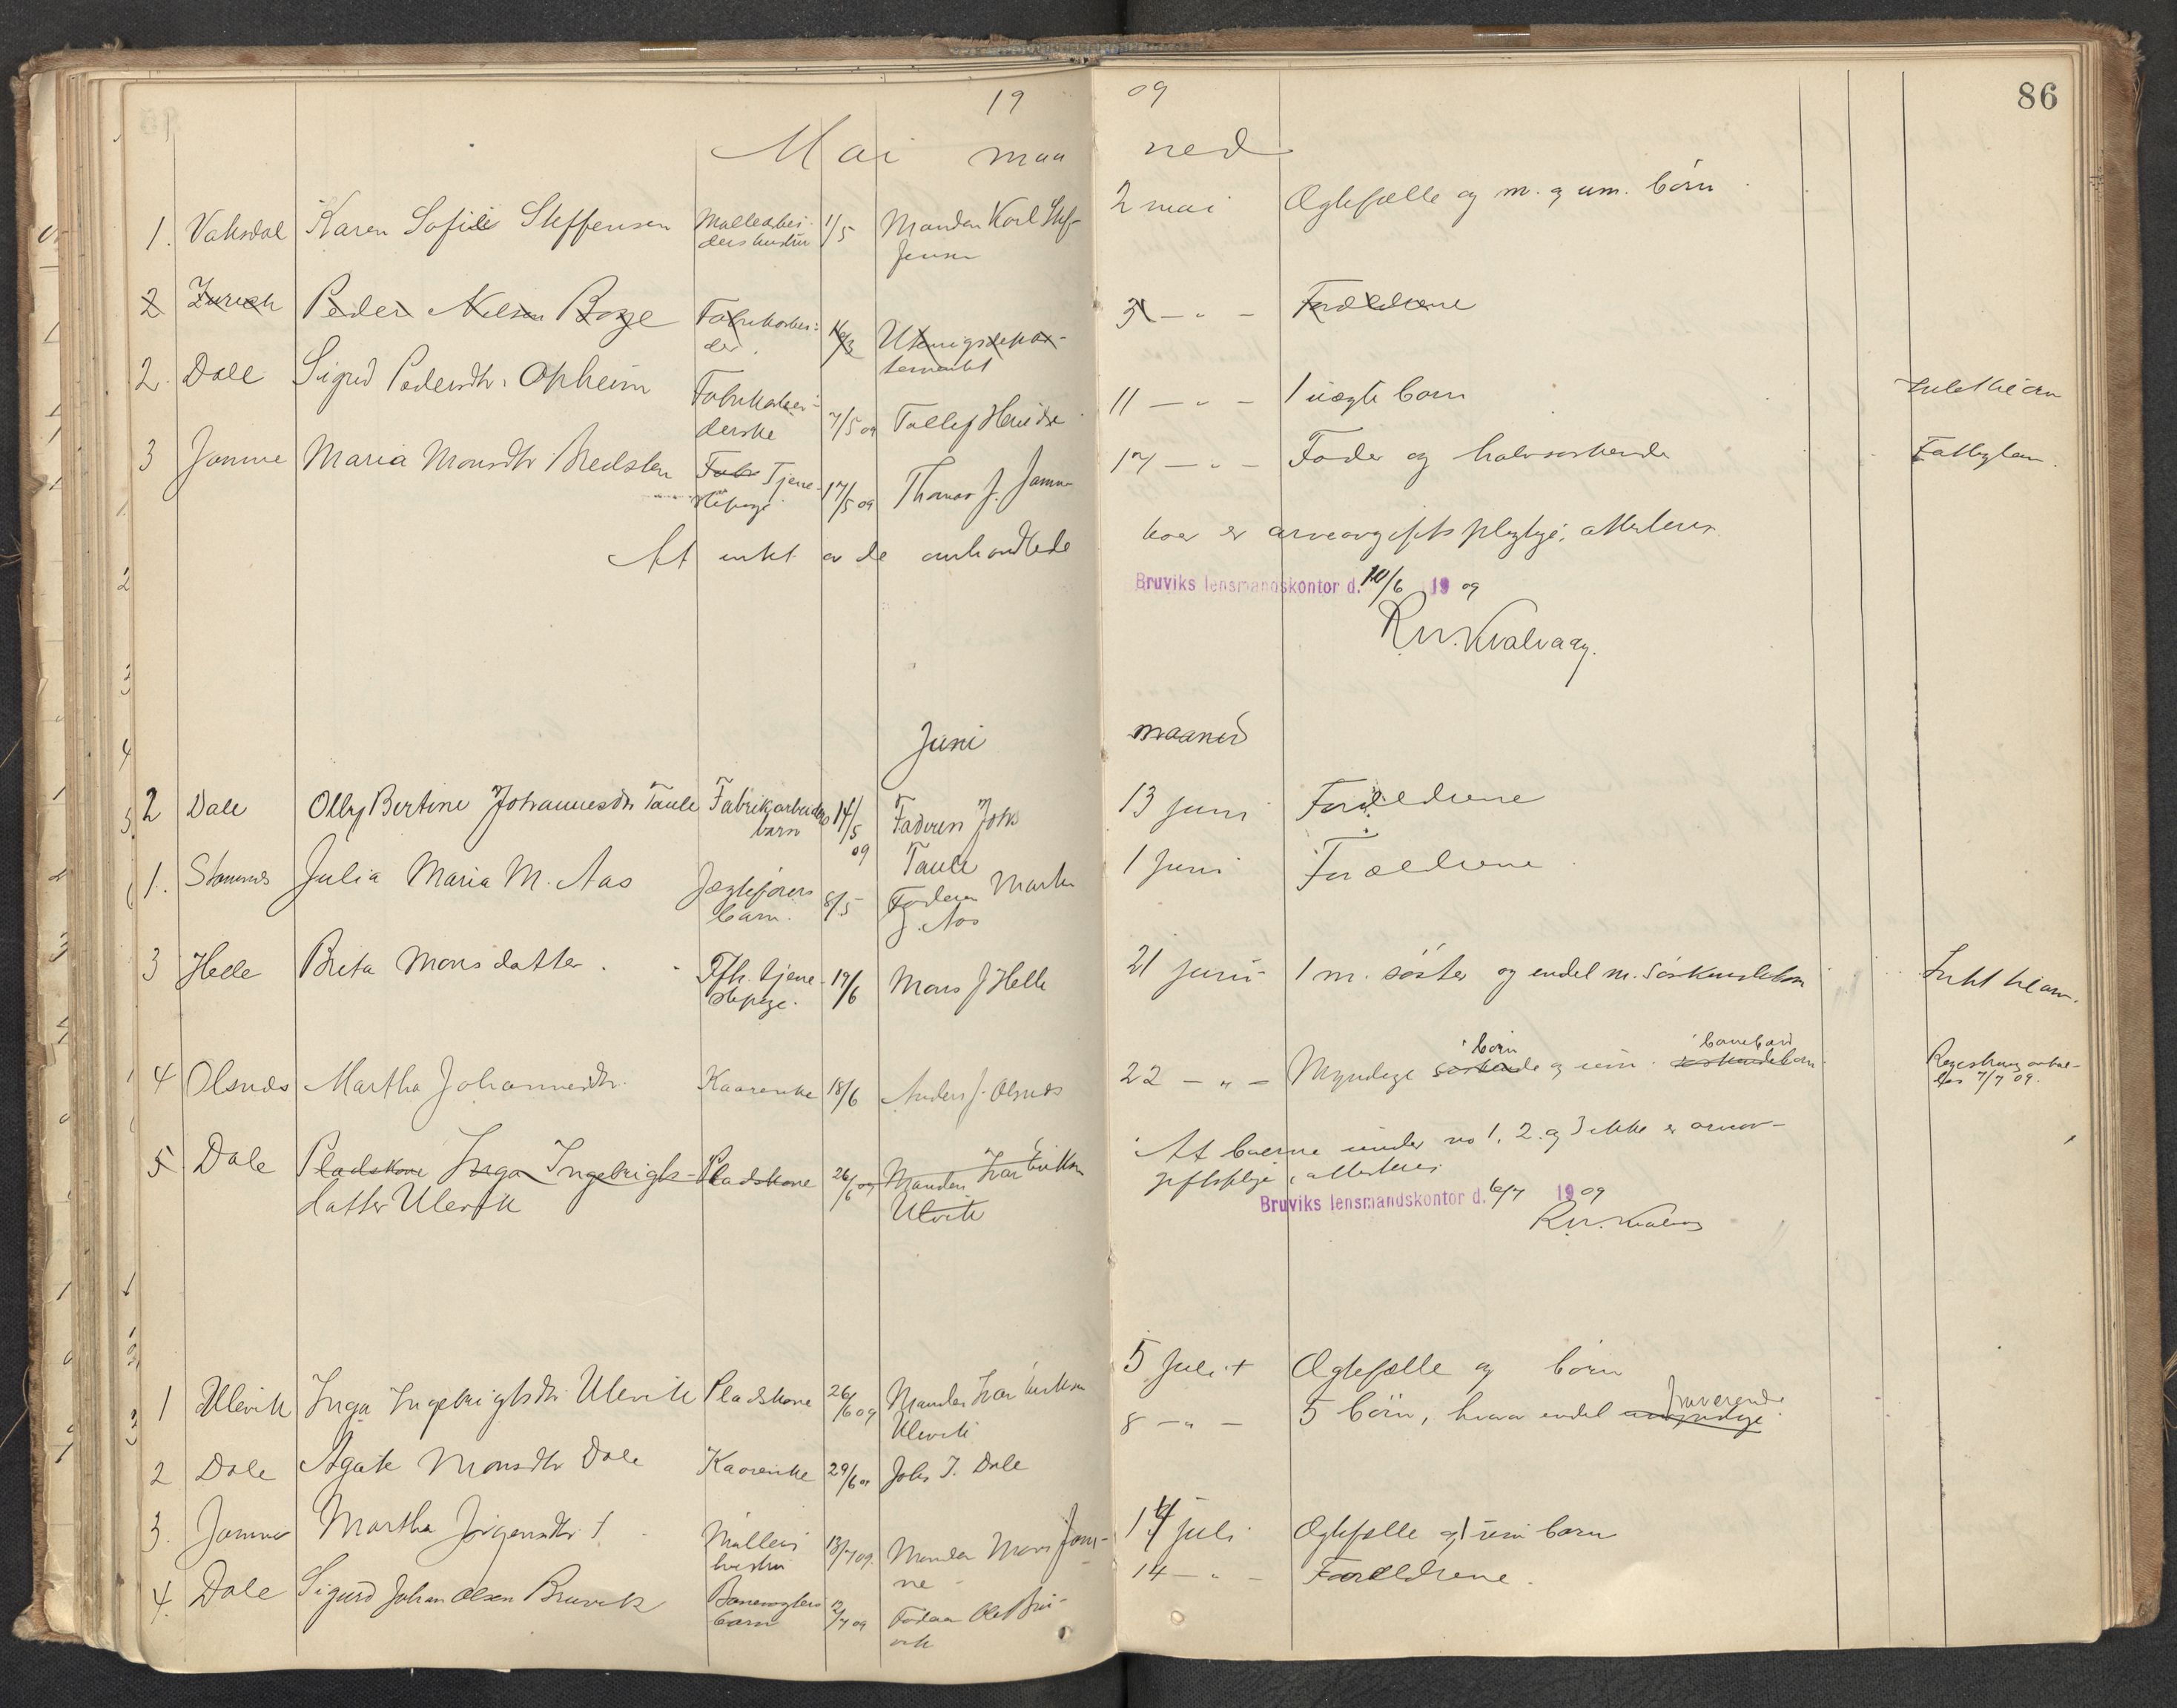 19 09
86
Mai maa ned
1. Vaksdal Karen Sofie Steffensen Møllearbei- 1/5 Manden Karl Stef- 2 mai Ægtefælle og m. og um. børn
ders hustru fensen
2 Zurich Peder Nilsen Fabrikarbei- Utenrigsdepar- 31 — " — Forældrene
der. tementet
2. Dale Sigrid Pedersdtr. Opheim Fabrikarbei- 7/5 09 11 — " — 1 uægte barn
derske
3 Jamne Maria Monsdtr Bredsten Fabr Tjene- 17/5 09 Thomas J. Jamne 17 — " — Fader og halvsøskende Fattiglem.
stepige
At intet av de anmeldte
boer er arveavgiftspligtige, attesteres.
Bruviks lensmandskontor d. 10/6 1909
R.W. Kvalvaag.
Juni maaned
2 Dale Olly Bertine Johannesdtr Taule Fabrikarbeiders 14/5 Faderen Johs 13 juni Forældrene
barn 09 Taule
1. Stamnes Julia Maria M. Aas Jægteførers 8/5 Faderen Martin 1 juni Forældrene
barn. J. Aas
3 Helle Brita Monsdatter. Fh. tjene- 19/6 Mons J Helle 21 juni 1 m. søster og endel m. søskendebørn
stepige.
børn barnebarn
4 Olsnes Martha Johannesdtr. Kaarenke 18/6 Anders J. Olsnes 22 — " — Myndige søskende og um. søskendebørn
7/7 09.
5 Dale Pladskone Inga Ingebrigts- Pladskone 26/6 09 Manden Ivar Erikson
datter Ulevik Ulevik
At boerne under no 1, 2 og 3 ikke er arveav-
giftspligt, attesteres
Bruviks lensmandskontor d. 6/7 1909
R.W. Kvalvaag
1 Ulevik Inga Ingebrigtsdtr Ulevik Pladskone 26/6 09 Manden Ivar Erikson 5 juli Ægtefælle og børn
Ulevik
fraværende
2 Dale Agate Monsdtr Dale Kaarenke 29/6 09 Johs I. Dale 8 — " — 5 børn, hvorav endel umyndige
3. Jamne Martha Jørgensdtr. Møllers 13/7 09. Manden Mons Jam- 14 juli Ægtefælle og 1 um barn
hustru ne
4. Dale Sigurd Johan Olsen Bruvik Banevogters 12/7 09 Faderen Ole Bru- 14 — " — Forældrene.
barn vik